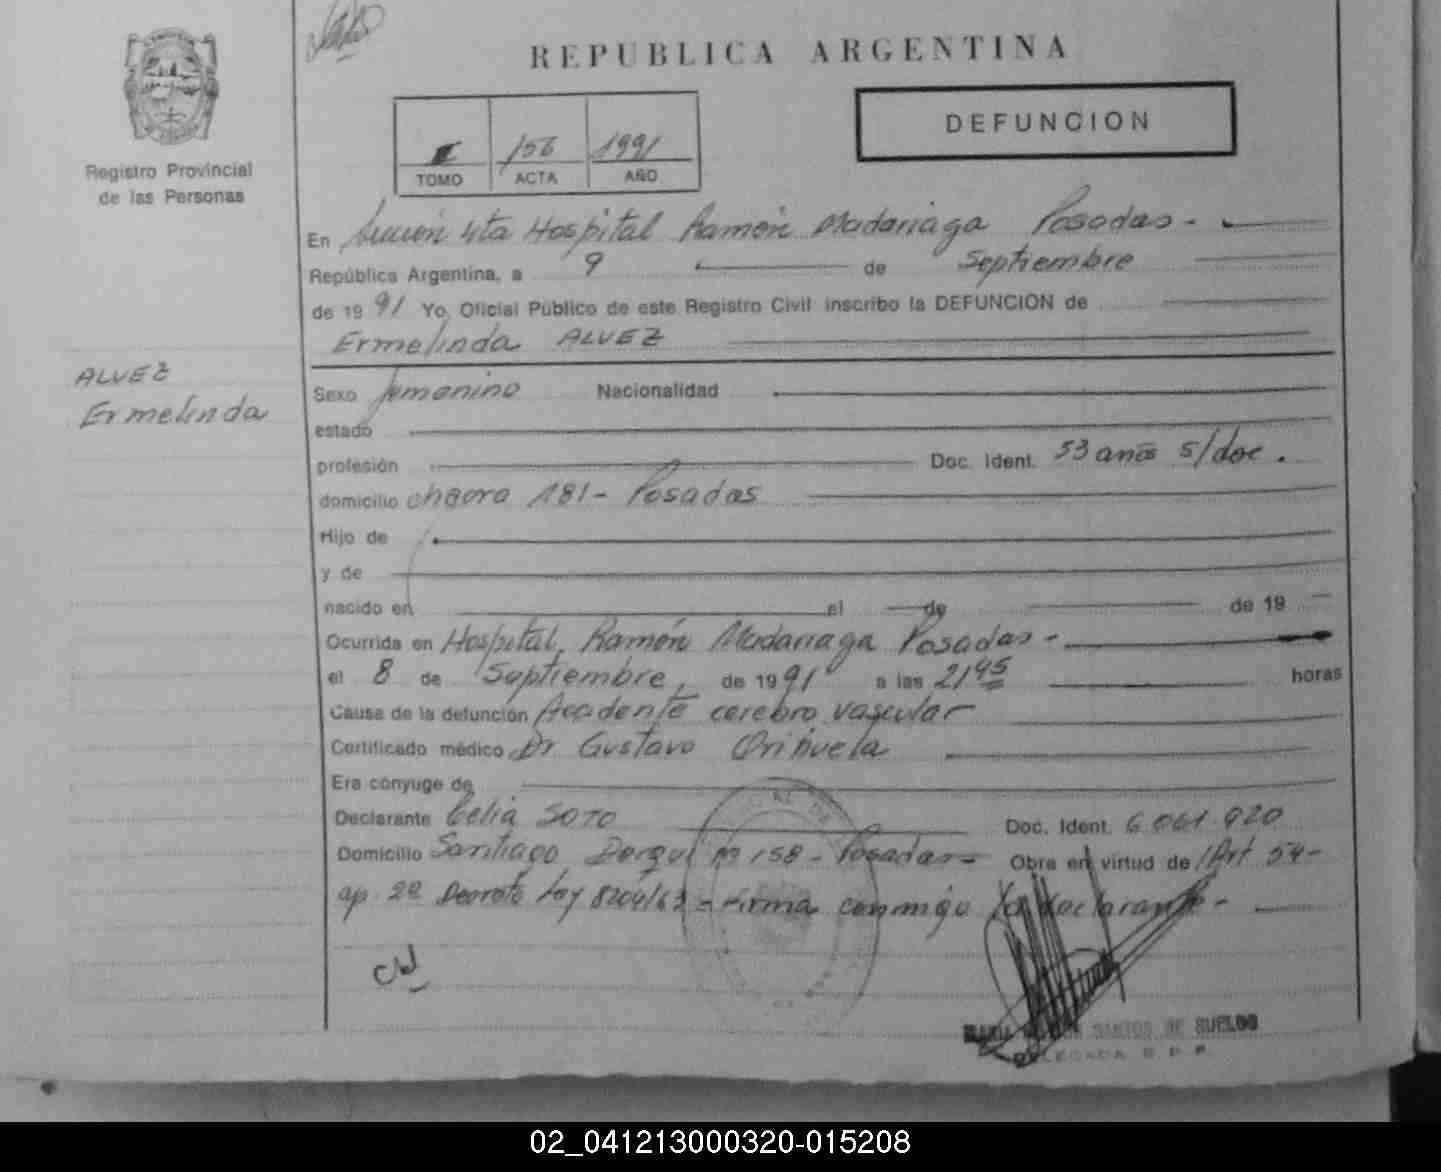 REPUBLICA ARGENTINA
Registro Provincial
de las Personas
156 1991
TOMO ACTA AÑO
DEFUNCION
En Sección 4ta Hospital Ramón Madariaga Posadas -
República Argentina, a 9 de Septiembre
de 1991 Yo, Oficial Público de este Registro Civil inscribo la DEFUNCION de
Ermelinda ALVEZ
ALVEZ
Ermelinda
Sexo femenino Nacionalidad
estado
profesión Doc. Ident. 53 anõs s/doc.
domicilio chacra 181 - Posadas
Hijo de
y de
nacido en el de de 19
Ocurrida en Hospital Ramón Madariaga Posadas -
el 8 de Septiembre, de 1991 a las 21 45 horas
Causa de la defunción Accidente cerebro vascular
Certificado médico Dr Gustavo
Era cónyuge de
Declarante Celia SOTO Doc. Ident. 6.061.920
Domicilio Santiago Derqui nº 158 - Posadas - Obra en virtud de Art 54 -
ap. 2º Decreto Ley 8204/63 - Firma conmigo la declarante -
SANTOS DE SUELDO
DELEGADA R. P. P.
02_041213000320-015208